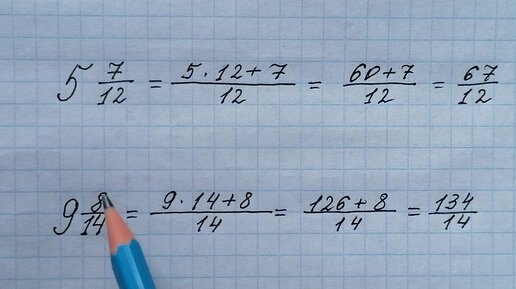 5 7/12 = 5·12+7/12 = 60+7/12 = 67/12
9 8/14 = 9·14+8/14 = 126+8/14 = 134/14